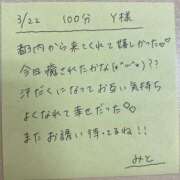 3/22 100分 Y様
都内から来てくれて嬉しかった♡
今日癒されたかな(о´∀`о)?
汗だくになってお互い気持ち
よくなれて幸せだった♡
またお誘い待ってるね!!
みと